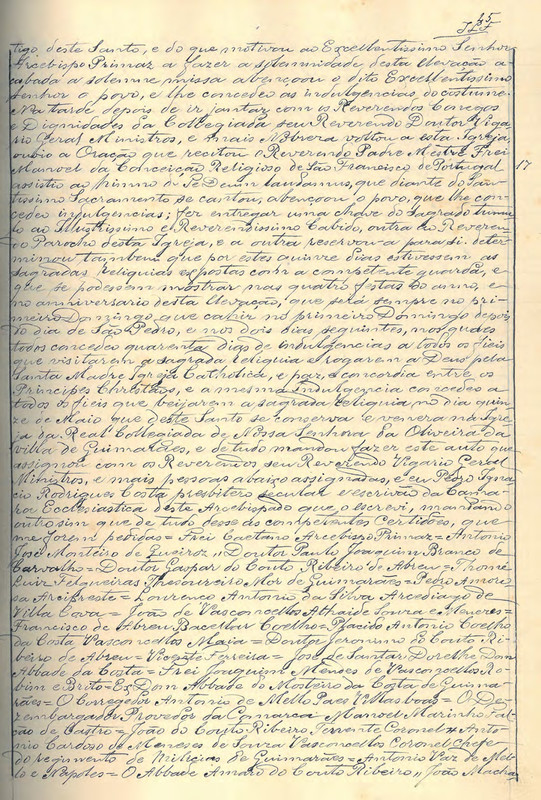 45
tigo deste Santo, e do que motivou ao Excellentissimo Senhor
Arcebispo Primaz a fazer a solemnidade desta elevação a
cabada a solemne missa abençoou o dito Excellentissimo
Senhor o povo, e lhe concedeo as indulgencias do costume.
Na tarde depois de ir jantar com os Reverendos Conegos
e Dignidades da Collegiada seu Reverendo Doutor Viga
rio Geral Ministros, e mais Nobreza voltou a esta Igreja,
ouvio a Oração que recitou o Reverendo Padre Mestre Frei
Manoel da Conceição Religioso de São Francisco de Portugal
17
assistio ao himno de Te Deum laudamus, que diante do San
tissimo Sacramento se cantou, abençoou o povo, que lhe con
cedeo indulgencias; fez entregar uma chave do Sagrado tumu
lo ao Illustrissimo e Reverendissimo Cabido, outra ao Reveren
do Parocho desta Igreja, e a outra reservou-a para si. deter
minou tambem que por estes quinze dias estivessem as
sagradas reliquias expostas com a competente guarda, e
que se podessem mostrar nas quatro festas do anno, e
no anniversario desta elevação, que será sempre no pri
meiro Domzingo que cahir no primeiro Domingo depois
do dia de São Pedro, e nos dois dias seguintes, nos quaes
todos concedeo quarenta dias de indulgencias a todos os fieis
que visitarem a sagrada reliquia e rogarem a Deus pela
Santa Madre Igreja Catholica, e paz, e concordia entre os
Principes Christãos, e a mesma Indulgencia concedeo a
todos os fieis que beijarem a sagrada reliquia no dia quin
ze de Maio que deste Santo se conserva e venera na Igre
ja da Real Collegiada de Nossa Senhora da Oliveira da
villa de Guimarães, e de tudo mandou fazer este auto que
assignou com os Reverendos seu Reverendo Vigario Geral
Ministros, e mais pessoas abaixo assignadas, e eu Pedro Igna
cio Rodrigues Costa presbitero secular e escrivão da Cama
ra Ecclesiastica deste Arcebispado que o escrevi, mandando
outro sim que de tudo desse as competentes Certidões, que
me forem pedidas = Frei Caetano Arcebispo Primaz = Antonio
José Monteiro de Queiroz „ Doutor Paulo Joaquim Branco de
Carvalho = Doutor Gaspar do Couto Ribeiro de Abreu = Thomé
Luiz Felgueiras Thesoureiro Mor de Guimarães = Pedro Amore
sa Arcipreste = Lourenço Antonio da Silva Arcediago de
Villa Cova = João de Vasconcellos Athaide Souza e Menezes =
Francisco de Abreu Bacellar Coelho = Placido Antonio Coelho
da Costa Vasconcellos Maia = Doutor Jeronimo do Couto Ri-
beiro de Abreu = Vicente Ferreira = José de Santa Dom
Abbade da Costa = Frei Joaquim Menses de Vasconcellos
= Ex Dom Abbade do Mosteiro da Costa de Guima
rães = O Corregedor Antonio de Mello Paes Villasboas = O De
zembargador Provedor da Comarca Manoel Marinho Fal
cão de Castro = João do Couto Ribeiro Tenente Coronel = Anto
nio Cardoso de Meneses de Souza Vasconcellos Coronel Chefe
do regimento de Milicias de Guimarães = Antonio Vaz de Mel
lo e Napoles = O Abbade Amaro do Couto Ribeiro „ João Macha